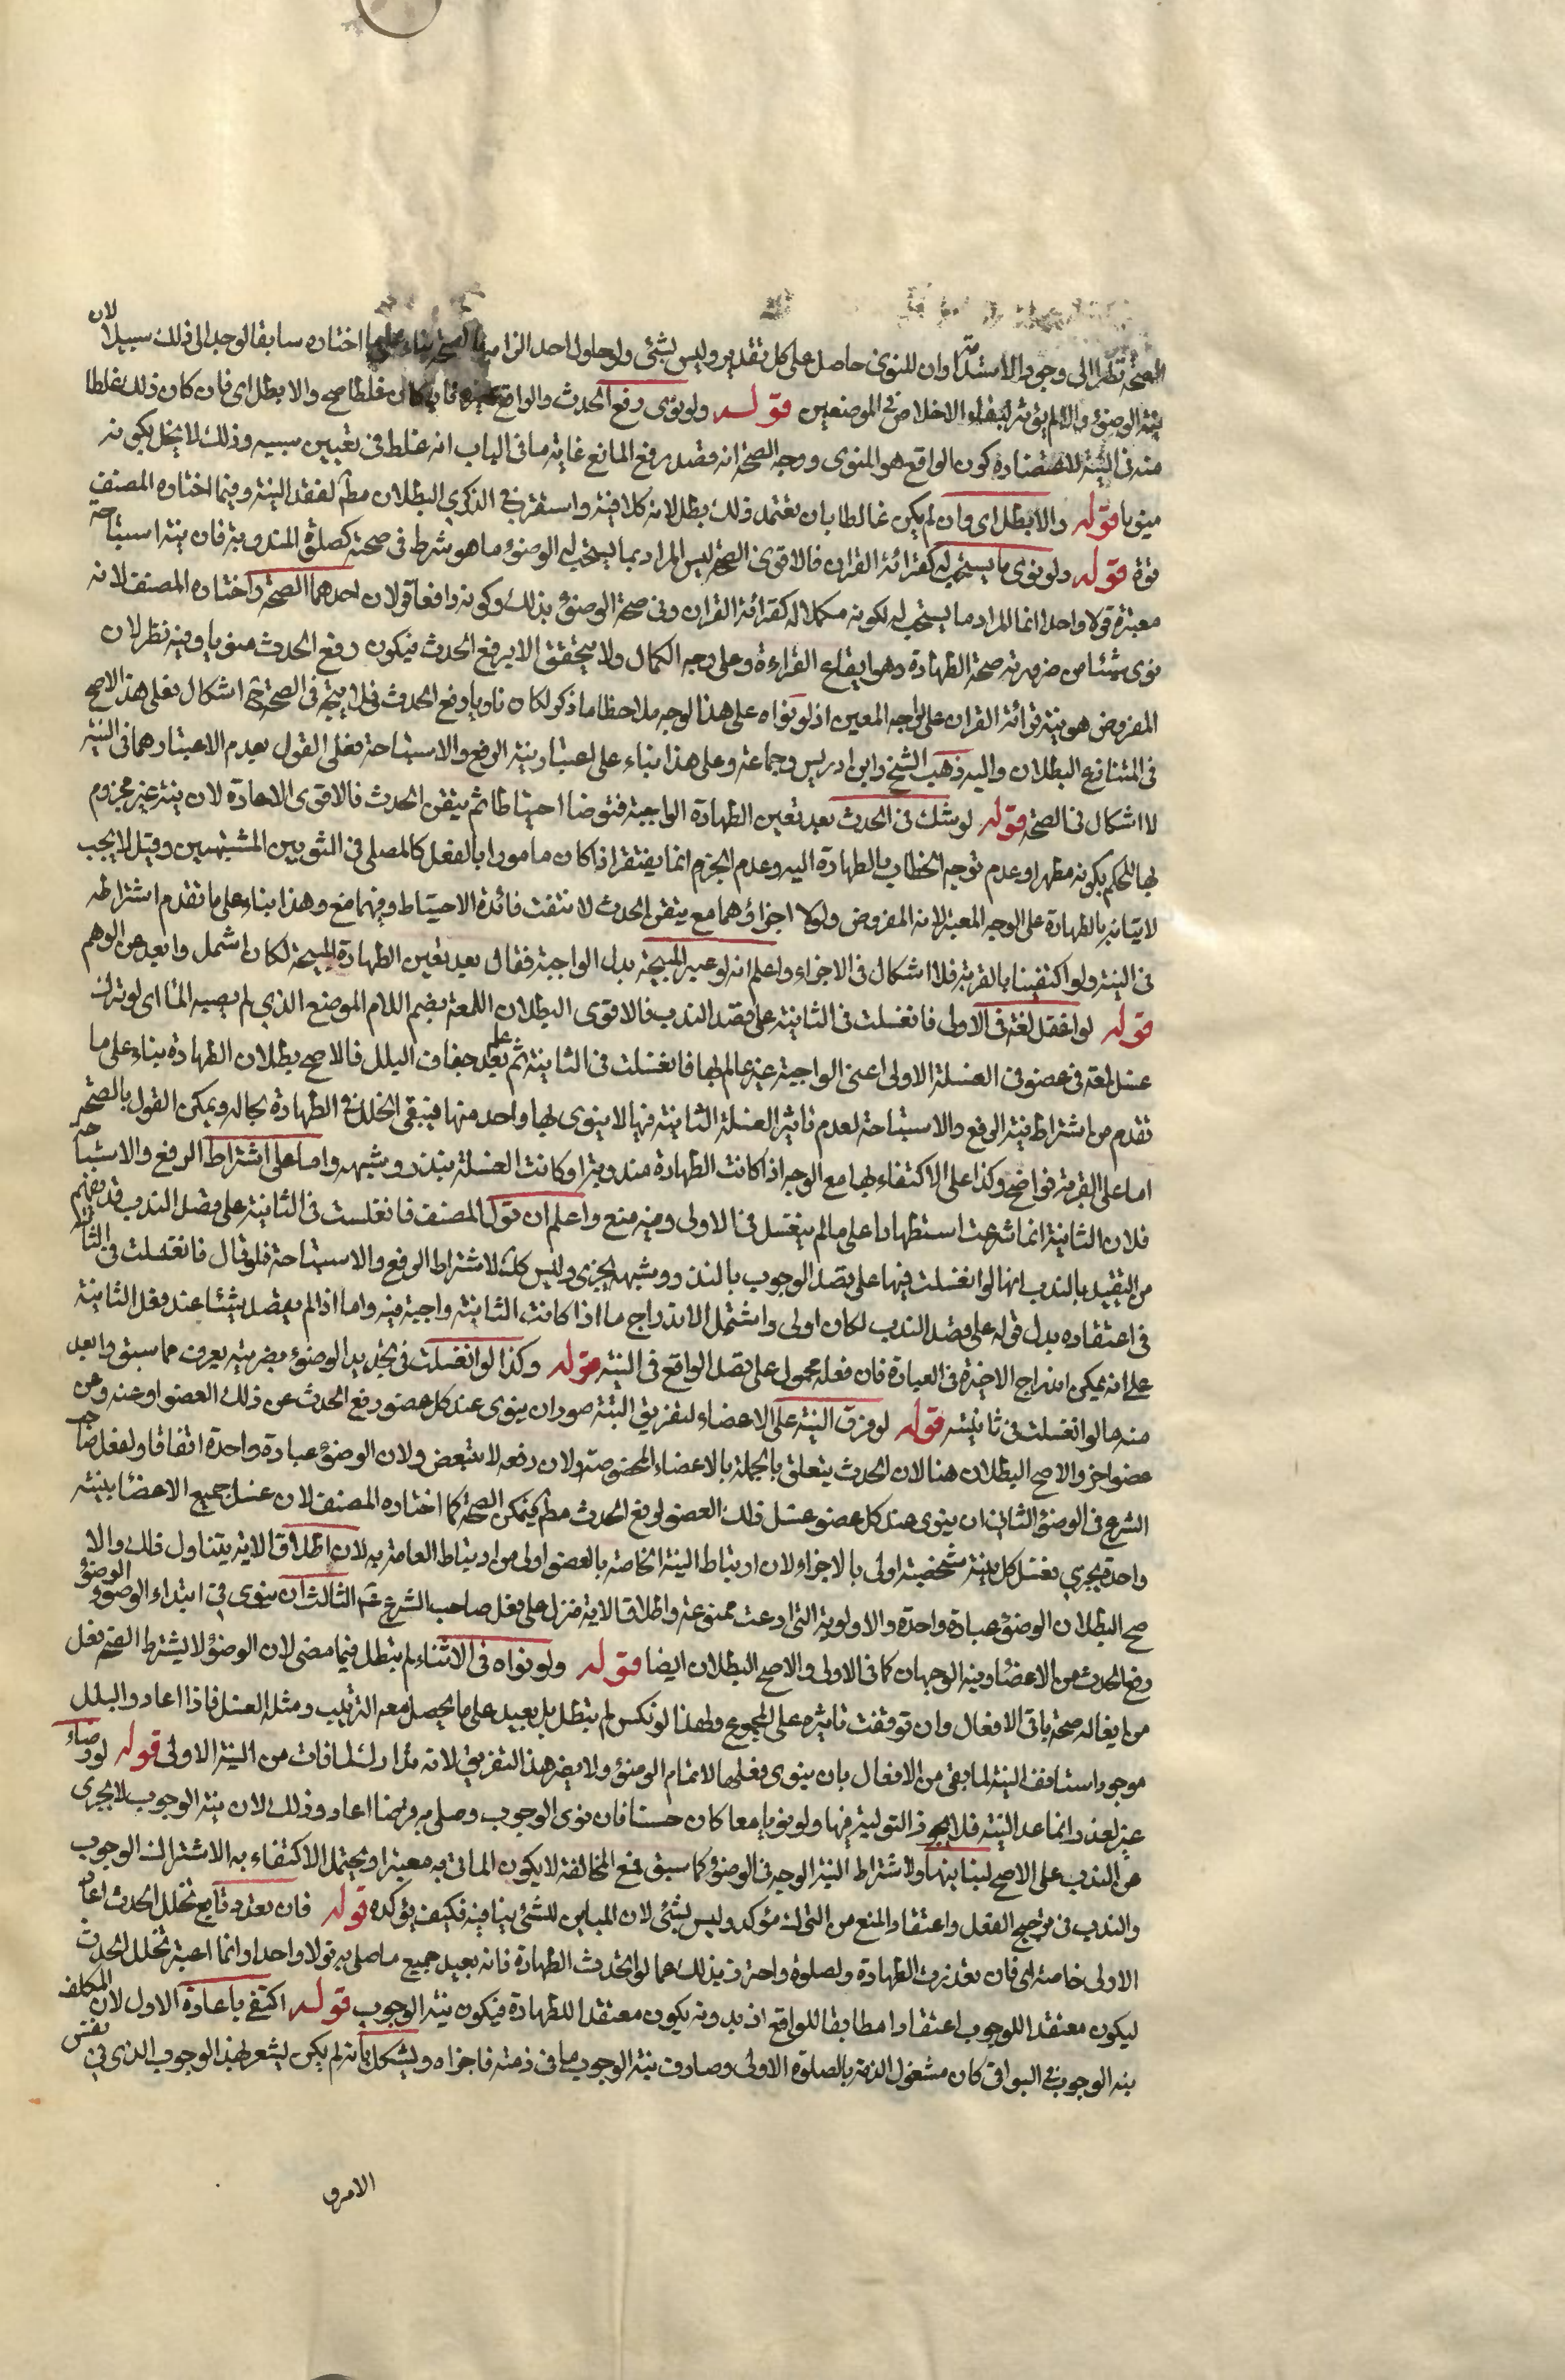 الصحة نظرا الى وجود الاستدامة وان المنوى حاصل على كل تقدير وليس بشئ ولو حاول احد الزام بناء على ما اختاره سابقا لوجد الى ذلك سبيلا لان
نية الوضوء والا لم يؤثر لبقاء الاخلاص فى الموضعين قوله ولو نوى رفع الحدث والواقع غيره فان كان غلطا صح والا بطل اى فان كان ذلك غلطا
منه فى النية كون الواقع هو المنوى ووجه الصحة انه قصد رفع المانع غاية ما فى الباب انه غلط فى تعيين سببه وذلك لا يخل بكونه
منويا قوله والا بطل اى وان لم يكن غالطا بان تعتمد ذلك بطل لانه كلا نية واستقرب فى الذكرى البطلان مطلقا لفقد النية وفيما اختاره المصنف
قوة قوله ولو نوى ما يستحب له كقرائة القران فالاقوى الصحة ليس المراد بما يستحب له الوضوء ما هو شرط فى صحته كصلوة المندوبة فان نية استباحة
معتبرة قولا واحدا انما المراد ما يستحب له لكونه مكملا له كقرائة القران وفى صحة الوضوء بذلك وكونه رافعا قولان احدهما الصحة واختاره المصنف لانه
نوى شيئا من ضرورته صحة الطهارة وهو ايقاع القراءة وعلى وجه الكمال ولا يتحقق الا برفع الحدث فيكون رفع الحدث منويا وفيه نظر لان
المفروض هو نية قرائة القران على الوجه المعين اذ لو نواه على هذا الوجه ملاحظا ما ذكر لكان ناويا رفع الحدث فلا يتجه فى الصحة ح اشكال فعلى هذا الاصح
فى المتنازع البطلان واليه ذهب الشيخ وابن ادريس وجماعة وعلى هذا بناء على اعتبار نية الرفع والاستباحة فعلى القول بعدم الاعتبارهما فى النية
لا اشكال فى الصحة قوله لو شك فى الحدث بعد تعين الطهارة الواجبة فتوضا احتياطا ثم تيقن الحدث فالاقوى الاعادة لان نيته غير مجزوم
بها للحكم بكونه مطهرا وعدم توجه الخطاب بالطهارة اليه وعدم الجزم انما يغتفر اذا كان مامورا بالفعل كالمصلى فى الثوبين المشتبهين وقيل لا يجب
لاتيانه بالطهارة على الوجه المعتبر لانه المفروض ولولا اجزاؤهما مع تيقن الحدث لانتفت فائدة الاحتياط وفيهما منع وهذا بناء على ما تقدم اشتراطه
فى النية ولو اكتفينا بالقربة فلا اشكال فى الاجزاء واعلم انه لو عبر المبيحة بدل الواجبة فقال بعد تعين الطهارة المبيحة لكان اشمل وابعد عن الوهم
قوله لو اغفل لمعة فى الاولى فانغسلت فى الثانية على قصد الندب فالاقوى البطلان اللمعة بضم اللام الموضع الذي لم يصبه الماء اى لو ترك
غسل لمعة فى عضو فى الغسلة الاولى اعنى الواجبة غير عالم بها فانغسلت فى الثانية ثم علم بعد جفاف البلل فالاصح بطلان الطهارة بناء على ما
تقدم من اشتراط نية الرفع والاستباحة لعدم تاثير الغسلة الثانية فيها لا ينوى بها واحد منها فيبقى الخلل فى الطهارة بحاله ويمكن القول بالصحة
اما على القربة فواضح وكذا على الاكتفاء بها مع الوجه اذا كانت الطهارة مندوبة او كانت الغسلة بنذر وشبهه واما على اشتراط الرفع والاستباحة
فلان الثانية انما شرعت استظهارا على ما لم ينغسل فى الاولى وفيه منع واعلم ان قول المصنف فانغسلت فى الثانية على قصد الندب قد يفهم
من التقييد بالندب انها لو انغسلت فيها على قصد الوجوب بالنذر وشبهه يجزى وليس كك لاشتراط الرفع والاستباحة فلو قال فانغسلت فى الثانية
فى اعتقاده بدل قوله على قصد الندب لكان اولى واشتمل الاندراج ما اذا كانت الثانية واجبة فيه واما اذا لم يقصد شيئا عند فعل الثانية
على انه يمكن اندراج الاخيرة فى العبارة فان فعله محمول على قصد الواقع فى النية قوله وكذا لو انغسلت فى تجديد الوضوء بضربيه يعرف مما سبق وابعد
منه ما لو انغسلت فى ثانيته قوله لو فرق النية على الاعضاء لتفريق النية صور ان ينوى عند كل عضو رفع الحدث عن ذلك العضو او عنه وعن
عضو اخر والاصح البطلان هنا لان الحدث يتعلق بالجملة بالاعضاء المخصوصة ولان رفعه لا يتبعض ولان الوضوء عبادة واحدة اتفاقا ولفعل صاحب
الشرع فى الوضوء الثانى ان ينوى عند كل عضو غسل ذلك العضو لرفع الحدث مطلقا فيمكن الصحة كما اختاره المصنف لان غسل جميع الاعضاء بنية
واحدة يجزي بغسل كل بنية شخصية اولى بالاجزاء لان ارتباط النية الخاصة بالعضو اولى من ارتباط العامة به لان اطلاق الاية يتناول ذلك والا
صح البطلان الوضوء عبادة واحدة والاولوية التى ادعت ممنوعة واطلاق الاية منزل على فعل صاحب الشرع ع الثالث ان ينوى فى ابتداء الوضوء
رفع الحدث من الاعضاء وفيه الوجهان كما فى الاولى والاصح البطلان ايضا قوله ولو نواه فى الاثناء لم يبطل فيما مضى لان الوضوء لا يشترط الصحة فعل
من افعاله صحة باقى الافعال وان توقفت تاثيره على المجموع ولهذا لو نكس لم يبطل بل يعيد على ما يحصل معه الترتيب ومثله الغسل فاذا اعاد والبلل
موجود استانف النية لما بقى من الافعال بان ينوى بفعلها لاتمام الوضوء ولا يضر هذا التفريق لانه تدارك لما فات من النية الاولى قوله لو وضاه
غيره لعذر انما عد النية فلا يجوز التولية فيها ولو نويا معا كان حسنا فان نوى الوجوب وصلى به فرضا اعاد وذلك لان نية الوجوب لا يجزى
عن الندب على الاصح لتباينهما ولاشتراط النية الوجه فى الوضوء كما سبق فمع المخالفة لا يكون الماتى به معتبرا ويحتمل الاكتفاء به الاشتراك الوجوب
والندب فى ترجيح الفعل واعتقاد المنع من الترك مؤكد وليس بشئ لان المباين للشئ ينافيه فكيف يؤكده قوله فان تعددتا مع تخلل الحدث اعاد
الاولى خاصة اى فان تعددت الطهارة والصلوة واحترز بذلك عما لو اتحدت الطهارة فانه يعيد جميع ما صلى به قولا واحدا وانما اعتبر تخلل الحدث
ليكون معتقدا للوجوب اعتقادا مطابقا للواقع اذ بدونه يكون معتقدا للطهارة فيكون نية الوجوب قوله اكتفى باعادة الاول لان المكلف
بنية الوجوب فى البواقى كان مشغول الذمة بالصلوة الاولى وصادف نية الوجوب ما فى ذمته فاجزاه ويشكل بانه لم يكن يشعر بهذا الوجوب الذى فى نفس
الامرو